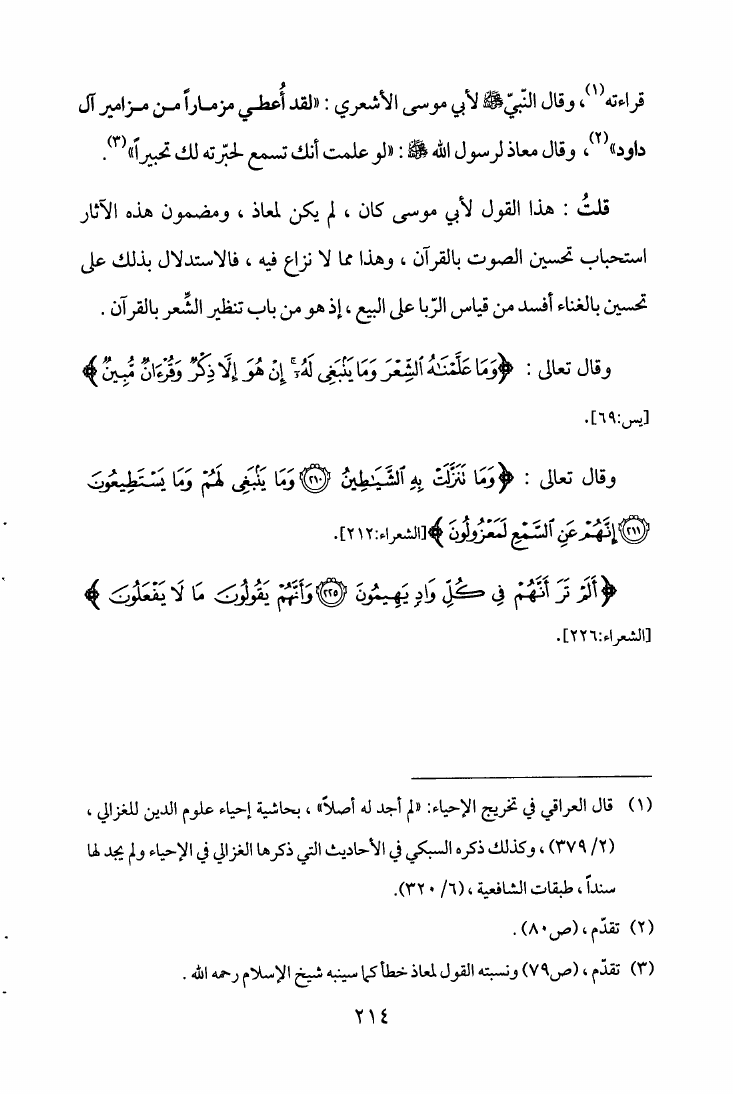 قراءته(١)، وقال النّبيّ ﷺ لأبي موسى الأشعري : «لقد أُعطي مزماراً من مزامير آل
داود»(٢)، وقال معاذ لرسول الله ﷺ : «لو علمت أنك تسمع لحبّرته لك تحبيراً»(٣).
قلتُ : هذا القول لأبي موسى كان ، لم يكن لمعاذ ، ومضمون هذه الآثار
استحباب تحسين الصوت بالقرآن ، وهذا مما لا نزاع فيه ، فالاستدلال بذلك على
تحسين بالغناء أفسد من قياس الرّبا على البيع ، إذ هو من باب تنظير الشِّعر بالقرآن .
وقال تعالى : ﴿وَمَا عَلَّمْنَٰهُ ٱلشِّعْرَ وَمَا يَنۢبَغِى لَهُۥٓ ۚ إِنْ هُوَ إِلَّا ذِكْرٌ وَقُرْءَانٌ مُّبِينٌ﴾
[يس:٦٩].
وقال تعالى : ﴿وَمَا نَنَزَّلَتْ بِهِ ٱلشَّيَٰطِينُ ۝٢١٠ وَمَا يَنۢبَغِى لَهُمْ وَمَا يَسْتَطِيعُونَ
۝٢١١ إِنَّهُمْ عَنِ ٱلسَّمْعِ لَمَعْزُولُونَ﴾ [الشعراء:٢١٢].
﴿أَلَمْ تَرَ أَنَّهُمْ فِى كُلِّ وَادٍ يَهِيمُونَ ۝٢٢٥ وَأَنَّهُمْ يَقُولُونَ مَا لَا يَفْعَلُونَ﴾
[الشعراء:٢٢٦].
(١) قال العراقي في تخريج الإحياء: «لم أجد له أصلاً» ، بحاشية إحياء علوم الدين للغزالي ،
(٢/ ٣٧٩) ، وكذلك ذكره السبكي في الأحاديث التي ذكرها الغزالي في الإحياء ولم يجد لها
سنداً ، طبقات الشافعية ، (٦/ ٣٢٠).
(٢) تقدّم ، (ص٨٠) .
(٣) تقدّم ، (ص٧٩) ونسبته القول لمعاذ خطأ كما سينبه شيخ الإسلام رحمه الله .
٢١٤